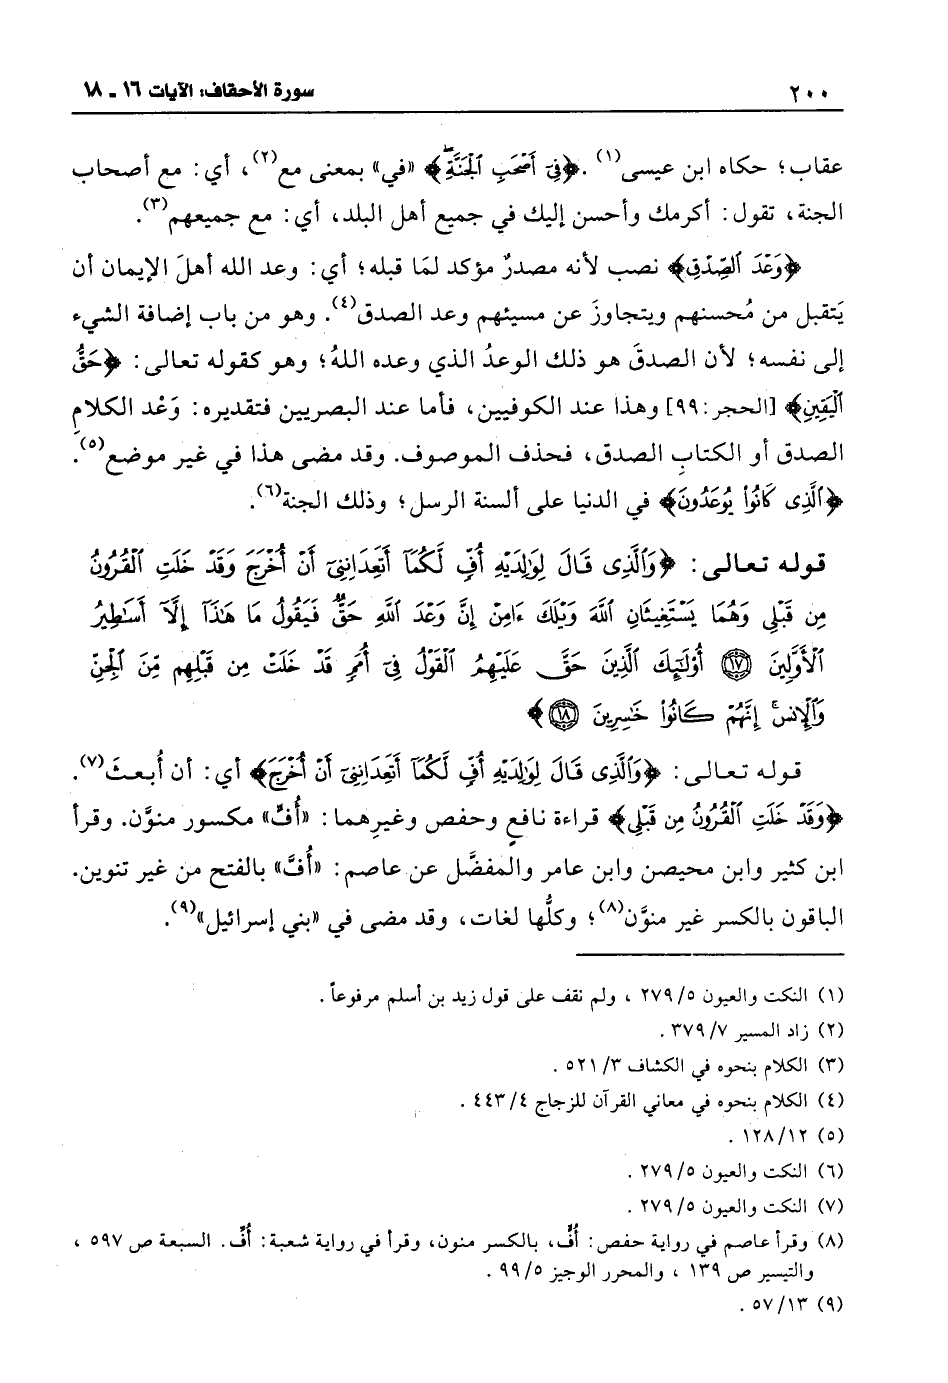 ٢٠٠ سورة الأحقاف: الآيات ١٦ - ١٨
عقاب؛ حكاه ابن عيسى(١). ﴿فِي أَصْحَٰبِ ٱلْجَنَّةِ﴾ «في» بمعنى مع(٢)، أي: مع أصحاب
الجنة، تقول: أكرمك وأحسن إليك في جميع أهل البلد، أي: مع جميعهم(٣).
﴿وَعْدَ ٱلصِّدْقِ﴾ نصب لأنه مصدرٌ مؤكد لمَا قبله؛ أي: وعد الله أهلَ الإيمان أن
يَتقبل من مُحسنهم ويتجاوزَ عن مسيئهم وعد الصدق(٤). وهو من باب إضافة الشيء
إلى نفسه؛ لأن الصدقَ هو ذلك الوعدُ الذي وعده اللهُ؛ وهو كقوله تعالى: ﴿حَقُّ
ٱلْيَقِينِ﴾ [الحجر:٩٩] وهذا عند الكوفيين، فأما عند البصريين فتقديره: وَعْد الكلامِ
الصدق أو الكتابِ الصدق، فحذف الموصوف. وقد مضى هذا في غير موضع(٥).
﴿ٱلَّذِى كَانُوا۟ يُوعَدُونَ﴾ في الدنيا على ألسنة الرسل؛ وذلك الجنة(٦).
قوله تعالى: ﴿وَٱلَّذِى قَالَ لِوَٰلِدَيْهِ أُفٍّ لَّكُمَآ أَتَعِدَانِنِىٓ أَنْ أُخْرَجَ وَقَدْ خَلَتِ ٱلْقُرُونُ
مِن قَبْلِى وَهُمَا يَسْتَغِيثَانِ ٱللَّهَ وَيْلَكَ ءَامِنْ إِنَّ وَعْدَ ٱللَّهِ حَقٌّ فَيَقُولُ مَا هَٰذَآ إِلَّآ أَسَٰطِيرُ
ٱلْأَوَّلِينَ ۝١٧ أُو۟لَٰٓئِكَ ٱلَّذِينَ حَقَّ عَلَيْهِمُ ٱلْقَوْلُ فِىٓ أُمَمٍ قَدْ خَلَتْ مِن قَبْلِهِم مِّنَ ٱلْجِنِّ
وَٱلْإِنسِ ۖ إِنَّهُمْ كَانُوا۟ خَٰسِرِينَ ۝١٨﴾
قوله تعالى: ﴿وَٱلَّذِى قَالَ لِوَٰلِدَيْهِ أُفٍّ لَّكُمَآ أَتَعِدَانِنِىٓ أَنْ أُخْرَجَ﴾ أي: أن أُبعثَ(٧).
﴿وَقَدْ خَلَتِ ٱلْقُرُونُ مِن قَبْلِى﴾ قراءة نافعٍ وحفص وغيرِهما: «أُفٍّ» مكسور منوَّن. وقرأ
ابن كثير وابن محيصن وابن عامر والمفضَّل عن عاصم: «أُفَّ» بالفتح من غير تنوين.
الباقون بالكسر غير منوَّن(٨)؛ وكلُّها لغات، وقد مضى في «بني إسرائيل»(٩).
(١) النكت والعيون ٥/ ٢٧٩ ، ولم نقف على قول زيد بن أسلم مرفوعاً .
(٢) زاد المسير ٧/ ٣٧٩ .
(٣) الكلام بنحوه في الكشاف ٣/ ٥٢١ .
(٤) الكلام بنحوه في معاني القرآن للزجاج ٤/ ٤٤٣ .
(٥) ١٢/ ١٢٨ .
(٦) النكت والعيون ٥/ ٢٧٩ .
(٧) النكت والعيون ٥/ ٢٧٩ .
(٨) وقرأ عاصم في رواية حفص: أُفٍّ، بالكسر منون، وقرأ في رواية شعبة: أُفِّ. السبعة ص ٥٩٧ ،
والتيسير ص ١٣٩ ، والمحرر الوجيز ٥/ ٩٩ .
(٩) ١٣/ ٥٧ .